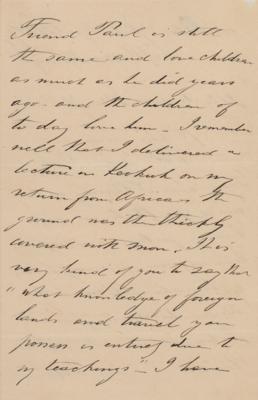 Friend Paul is still
the same and love children
as much as he did years
ago - and the children of
to day love him - I remember
well that I delivered a
lecture in Keokuk on my
return from Africa & the
ground was the thickly
covered with snow. It is
very kind of you to say that
"what knowledge of foreign
lands and travel you
possess is entirely due to
my teachings" - I have